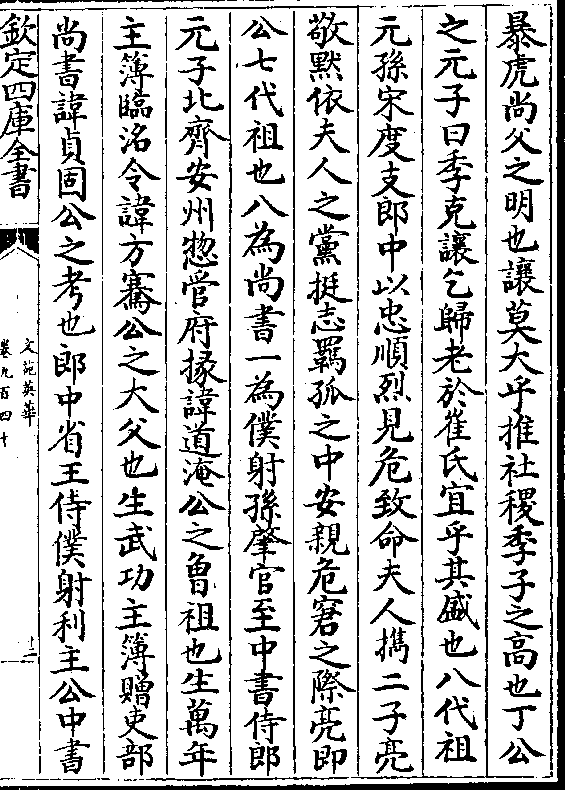 暴虎尚父之明也讓莫大乎推社稷季子之高也丁公
之元子曰季克讓乞歸老於崔氏宜乎其盛也八代祖
元孫宋度支郎中以忠順烈見危致命夫人携二子亮
敬默依夫人之黨挺志羇孤之中安親危窘之際亮即
公七代祖也八為尚書一為僕射孫肇官至中書侍郎
元子北齊安州揔管府掾諱道淹公之魯祖也生萬年
主簿臨洺令諱方騫公之大父也生武功主簿贈吏部
尚書諱貞固公之考也郎中省王侍僕射利主公中書
欽定四庫全書
文苑英華
卷九百四十
十二